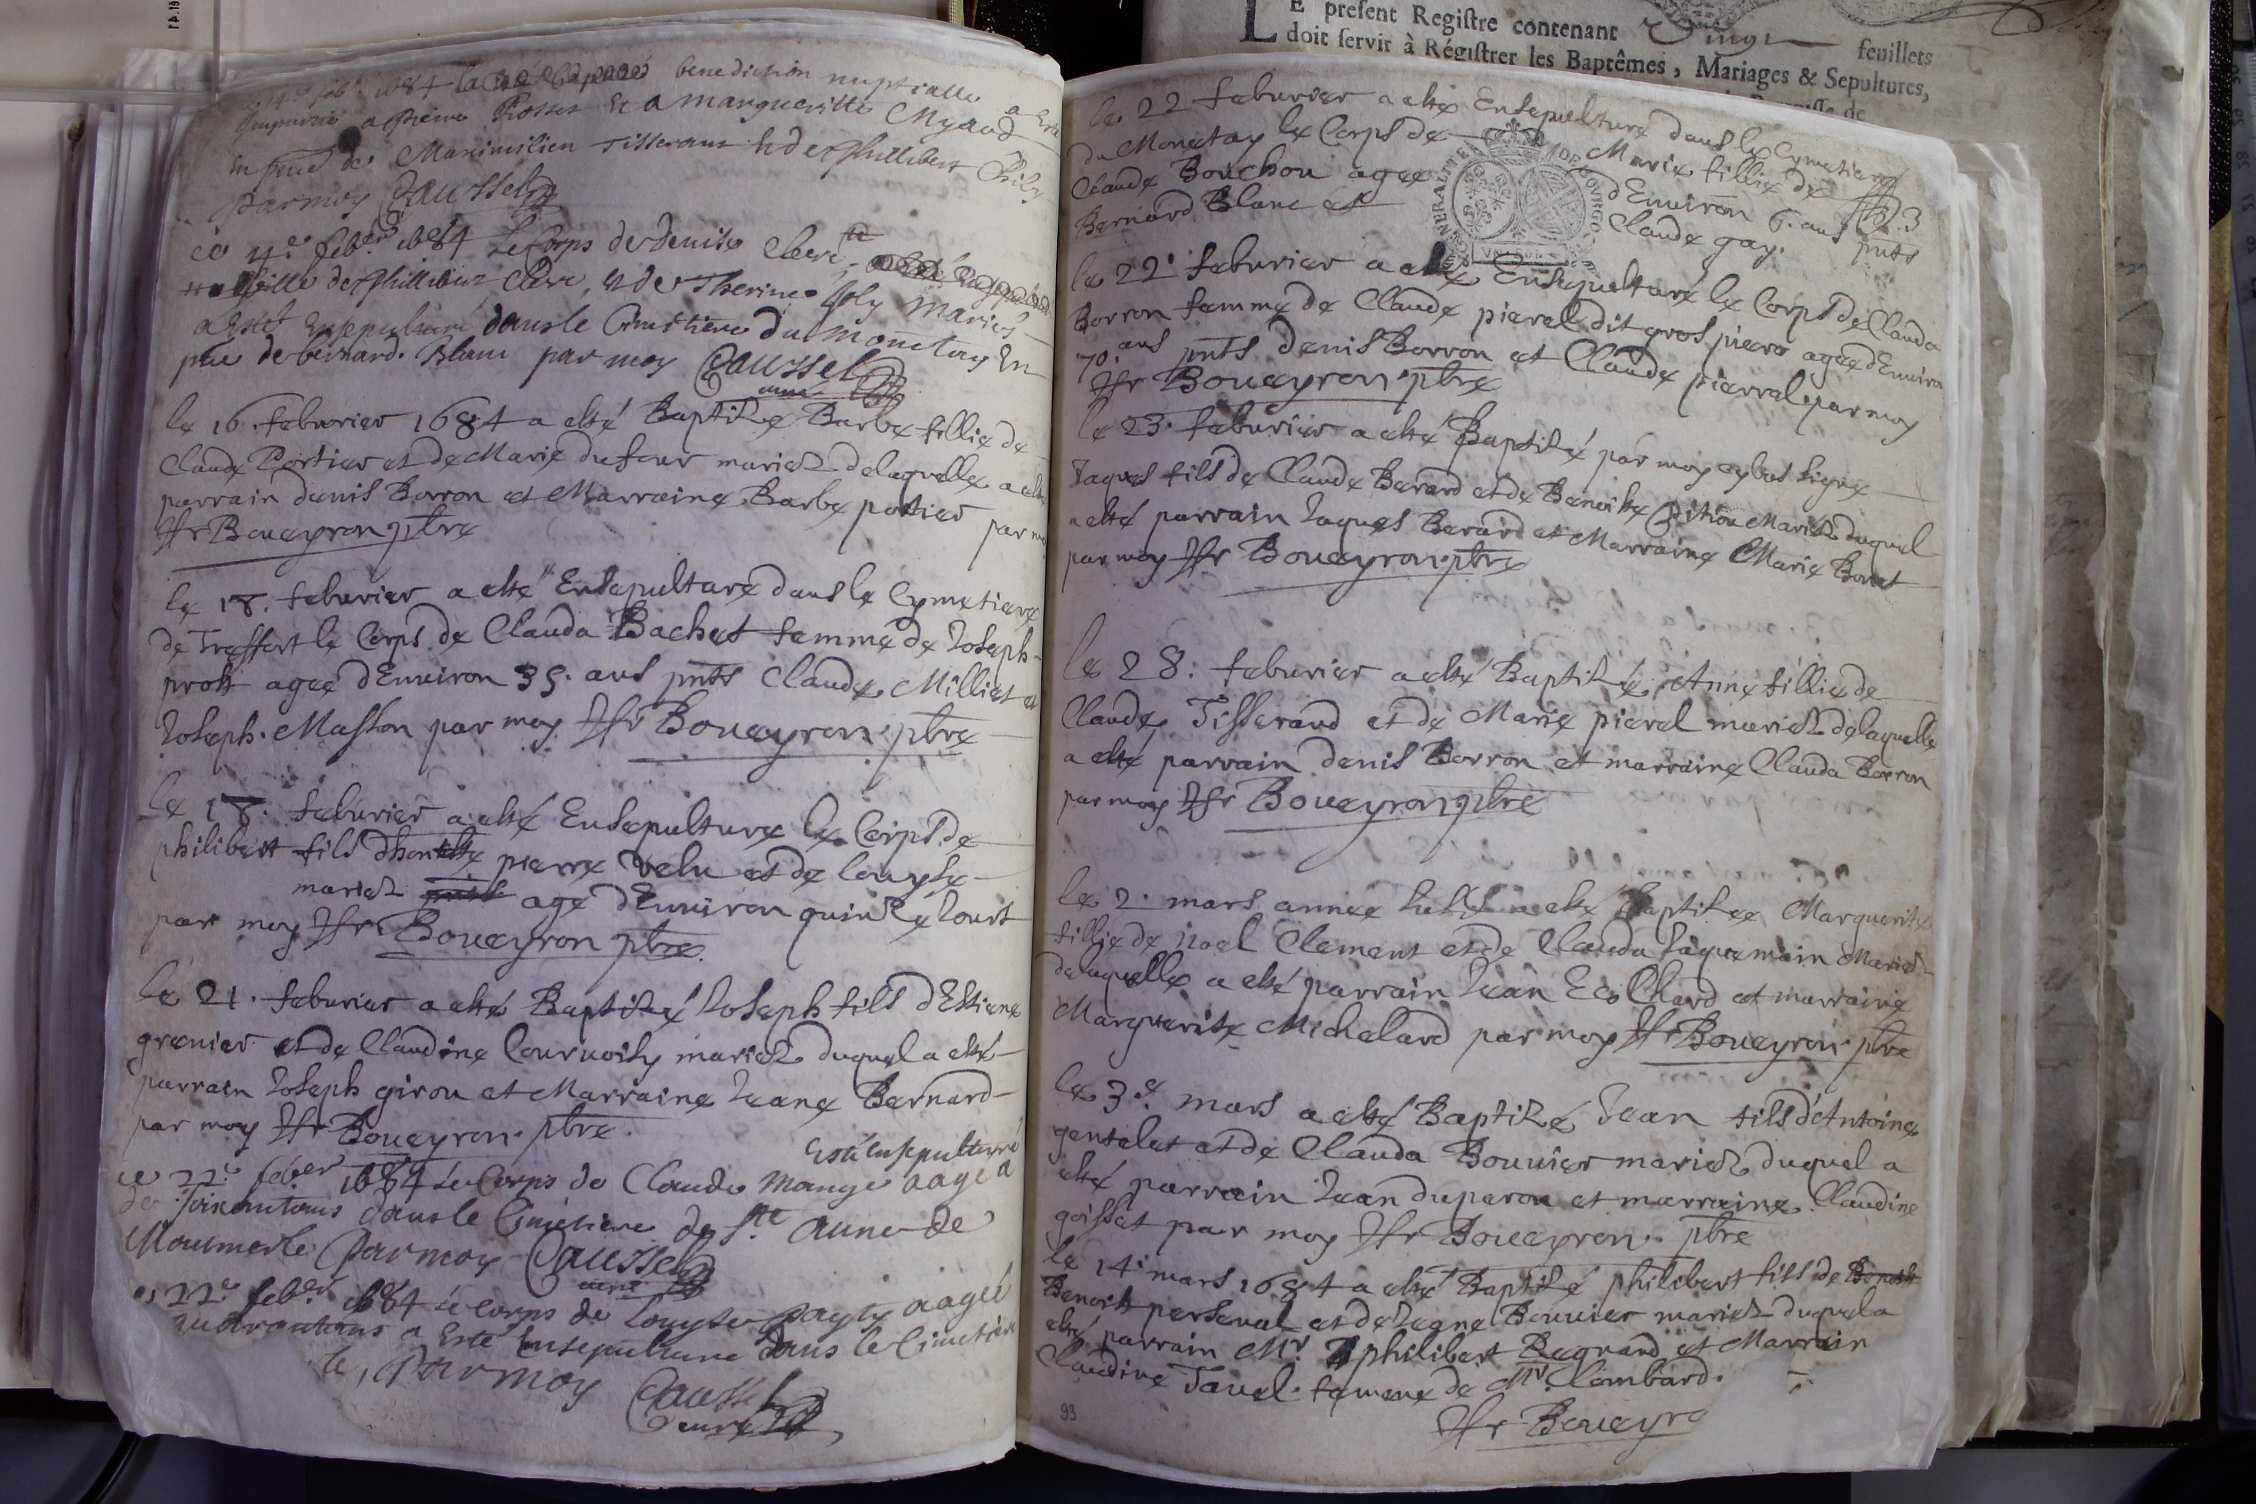 benediction nuptialle a Esté
Impartie a Pierre Rosset Et a Margueritte Myard
En pnce de Maximilien Tisserant & de Phillibert
par moy Caussel
ce 4e feber 1684 Le Corps de denise Clere
fille de Phillibert Clere, & de Therine Joly mariés
a Esté Ensepulturé dans le Cimetiere du monetay En
pnce de bernard Blanc par moy Caussel
curé
le 16. feburier 1684 a esté Baptizé Barbe fillie de
Claude Portier et de Marie dufour mariez de laquelle a esté
parrain denis Borron et Marraine Barbe portier par moy
Boueyron pbre
le 18. feburier a esté Ensepulturé dans le Cymetiere
de Treffort le Corps de Clauda Bachet femme de Joseph
prost agee dEnuiron 35. ans pnts Claude Milliet et
Joseph Masson par moy Boueyron pbre
le 18. feburier a esté Ensepulture le Corps de
philibert fils dhoneste pierre Velu et de louyse
mariez agé dEnuiron quinze Jours
par moy Boueyron pbre
le 21. feburier a esté Baptizé Joseph fils dEstiene
grenier et de Claudine Couruoisy mariez duquel a esté
parrain Joseph girou et Marraine Jeane Bernard
par moy Boueyron pbre
Esté ensepulturé
ce 22e feber 1684 Le Corps de Claude Mange aagé a
de soixantans dans le Cimetiere de Ste anne de
Monmerle par moy Caussel
curé
22e feber 1684 Le corps de Louyse aagée
quarantans a Esté Ensepulturé dans le Cimetiere
par moy Caussel
curé
E present Registre contenant Vingt feuillets
doit servir à Régistrer les Baptêmes, Mariages & Sepultures,
de
le 22 feburier a esté Ensepulturé dans le Cymetiere
du Monetay le Corps de Marie fillie de
Claude Bouchou agee dEnuiron 6. ans pnts
Bernard Blanc et Claude gay.
le 22e feburier a esté Ensepulturé le Corps de Clauda
Borron femme de Claude pieral dit gros piere agee dEnuiron
70. ans pnts denis Borron et Claude pierral par moy
Boueyron pbre
le 23. feburier a esté Baptizé par moy cybas signé
Jaques fils de Claude Berard et de Benoiste Pitiou Mariez duquel
a esté parrain Jaques Berard et Marraine Marie Boret
par moy Boueyron pbre
le 28. feburier a esté Baptizé Anne fillie de
Claude Tisserand et de Marie pieral mariez de laquelle
a esté parrain denis Borron et marraine Clauda Borron
par moy Boueyron pbre
le 2. mars année susd a esté Baptizee Marguerite
fillie de noel Clement et de Clauda Jaquemain Mariez
de laquelle a esté parrain Jean Ecochard et marraine
Marguerite Michelard par moy Boueyron pbre
le 3e. mars a esté Baptizé Jean fils d'Antoine
gentelet et de Clauda Bouuier mariez duquel a
esté parrain Jean duperou et marraine Claudine
goisset par moy Boueyron pbre
le 14. mars 1684 a esté Baptizé philibert fils de
Benoist perseual et de Jeane Bouuier mariez duquel a
esté parrain Mr philibert Regnard et Marrain
Claudine Tauel femme de Mr Clombard.
Boueyro
93